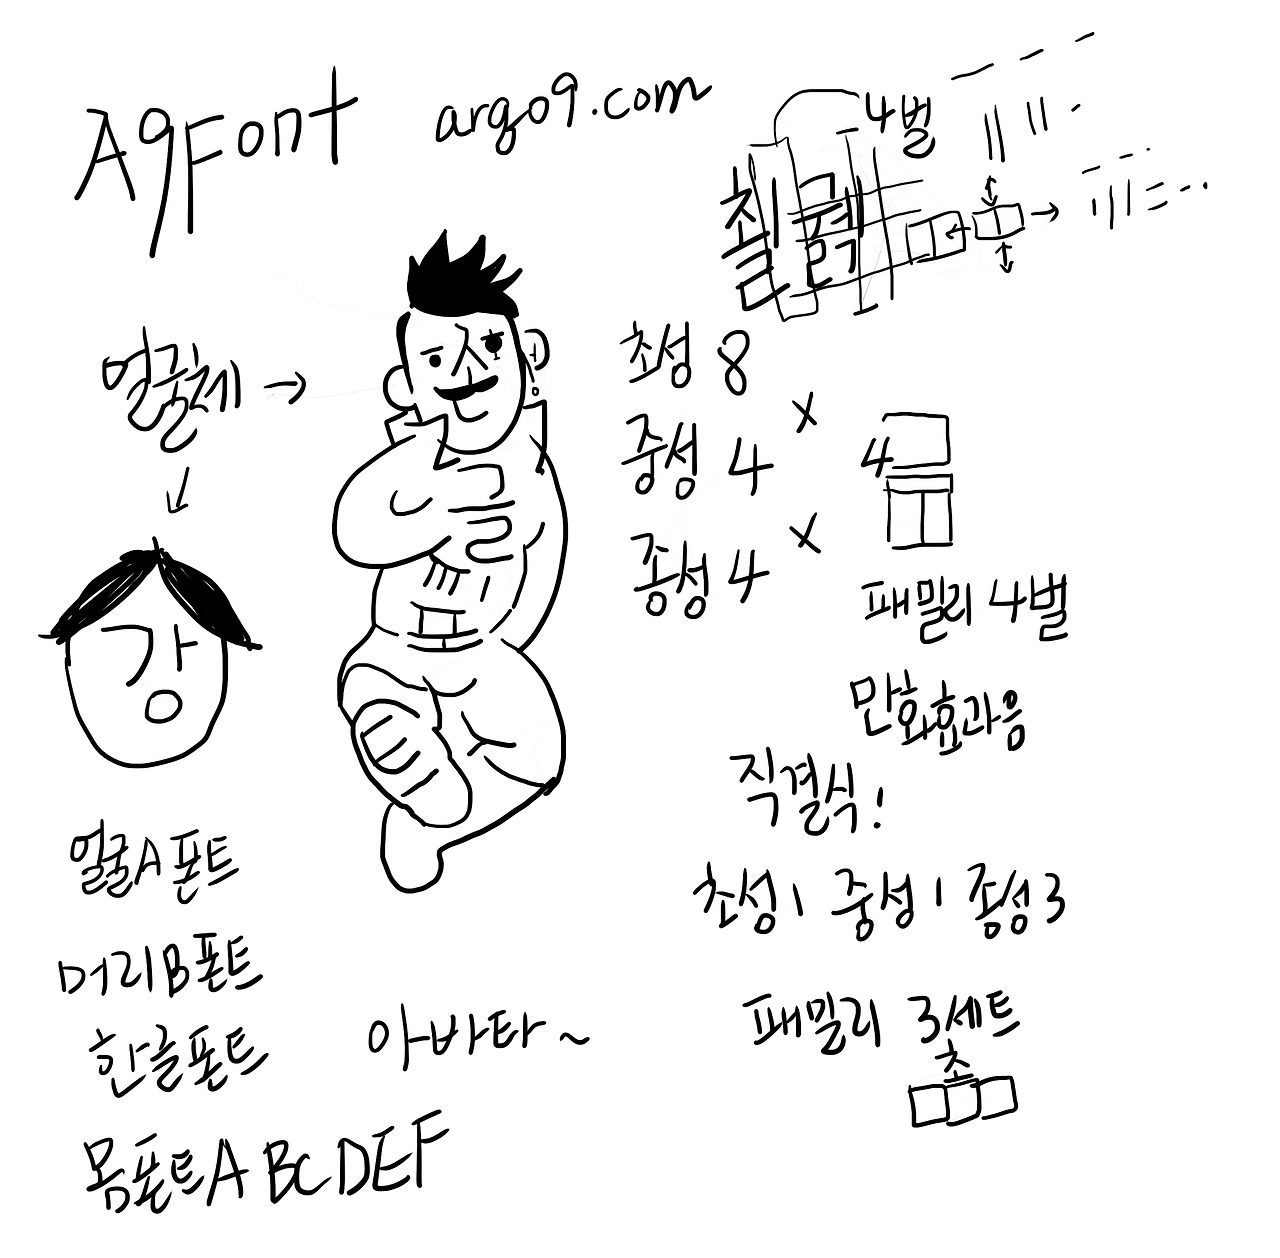 A9Font
argo9.com
4벌
얼굴체 →
강
얼굴A폰트
머리B폰트
한글폰트
몸폰트ABCDEF
아바타~
초성 8
×
중성 4
4
×
종성 4
패밀리 4벌
만화효과음
직결식!
초성1 중성1 종성3
패밀리 3세트
초